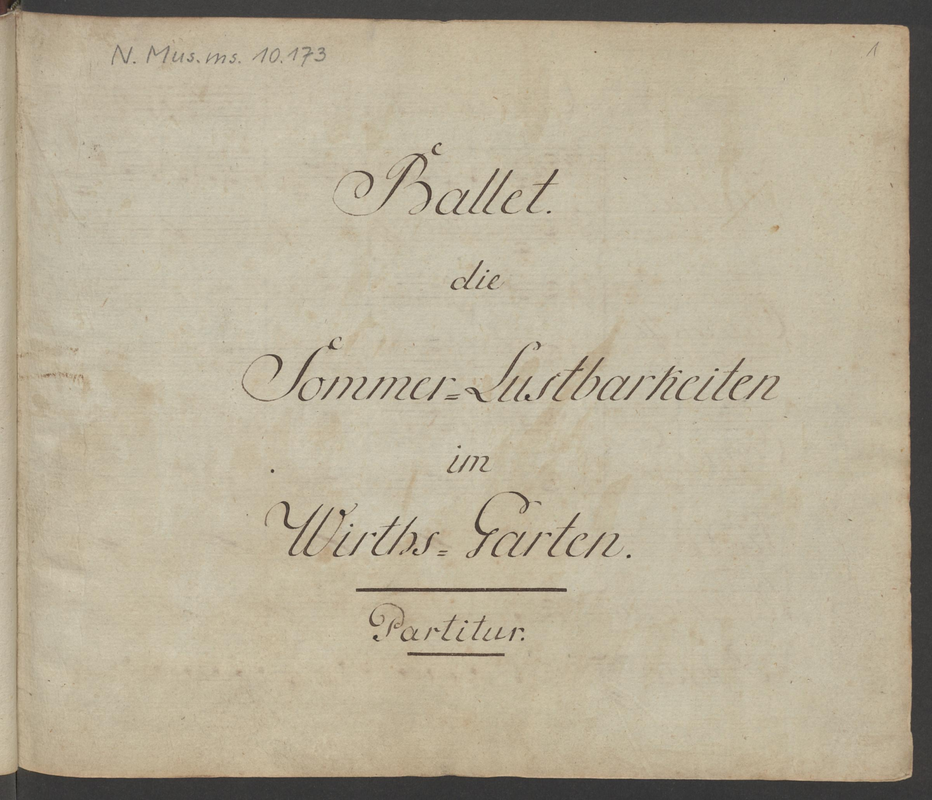 N. Mus. ms. 10.173
1
Ballet.
die
Sommer=Lustbarkeiten
im
Wirths=Garten.
Partitur.